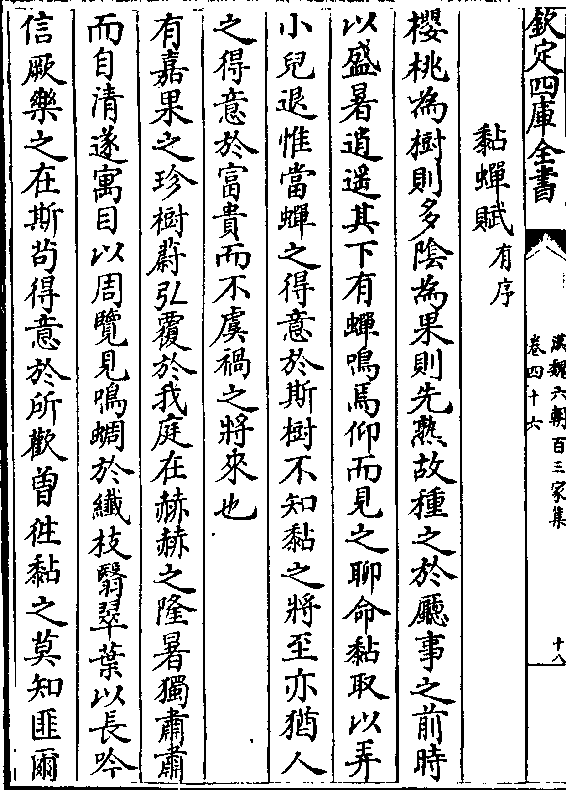 欽定四庫全書
漢魏六朝百三家集
卷四十六
十八
黏蟬賦有序
櫻桃為樹則多陰為果則先熟故種之於廳事之前時
以盛暑逍遥其下有蟬鳴焉仰而見之聊命黏取以弄
小兒退惟當蟬之得意於斯樹不知黏之將至亦猶人
之得意於富貴而不虞禍之將來也
有嘉果之珍樹蔚弘覆於我庭在赫赫之隆暑獨肅肅
而自清遂寓目以周覽見鳴蜩於纖枝翳翠葉以長吟
信厥樂之在斯苟得意於所歡曽徃黏之莫知匪爾